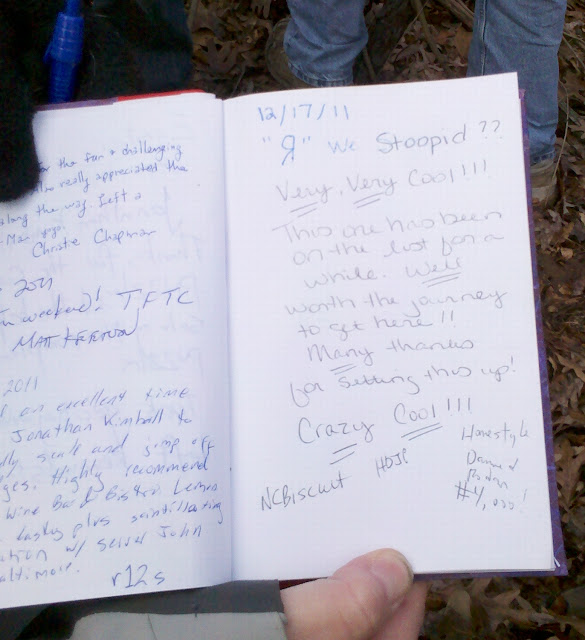 the fun & challenging
really appreciated the
along the way. Left a
Christe Chapman
2011
weekend! TFTC
MATT
2011
an excellent time
Jonathan Kimball to
scale and jump off
Highly recommend
plus scintillating
w/ server John
altimore.
r12s
12/17/11
"Я" We Stoopid ??
Very, Very Cool!!!
This one has been
on the list for a
while. Well
worth the journey
to get here!!
Many thanks
for setting this up!
Crazy Cool!!!
NCBiscuit HDSP
Homestyle
#4,000!